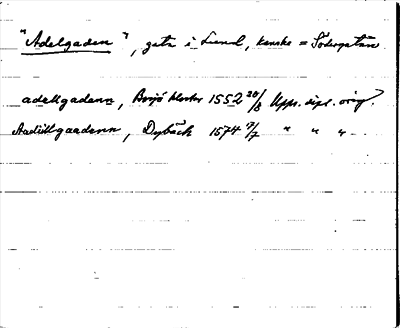 "Adelgaden", gata i Lund, kanske = Södergatan
adellgadenn, Bosjö kloster 1552 20/8 Upps. dipl. orig.
Aadillgaadenn, Dybäck 1574 7/7 " " "